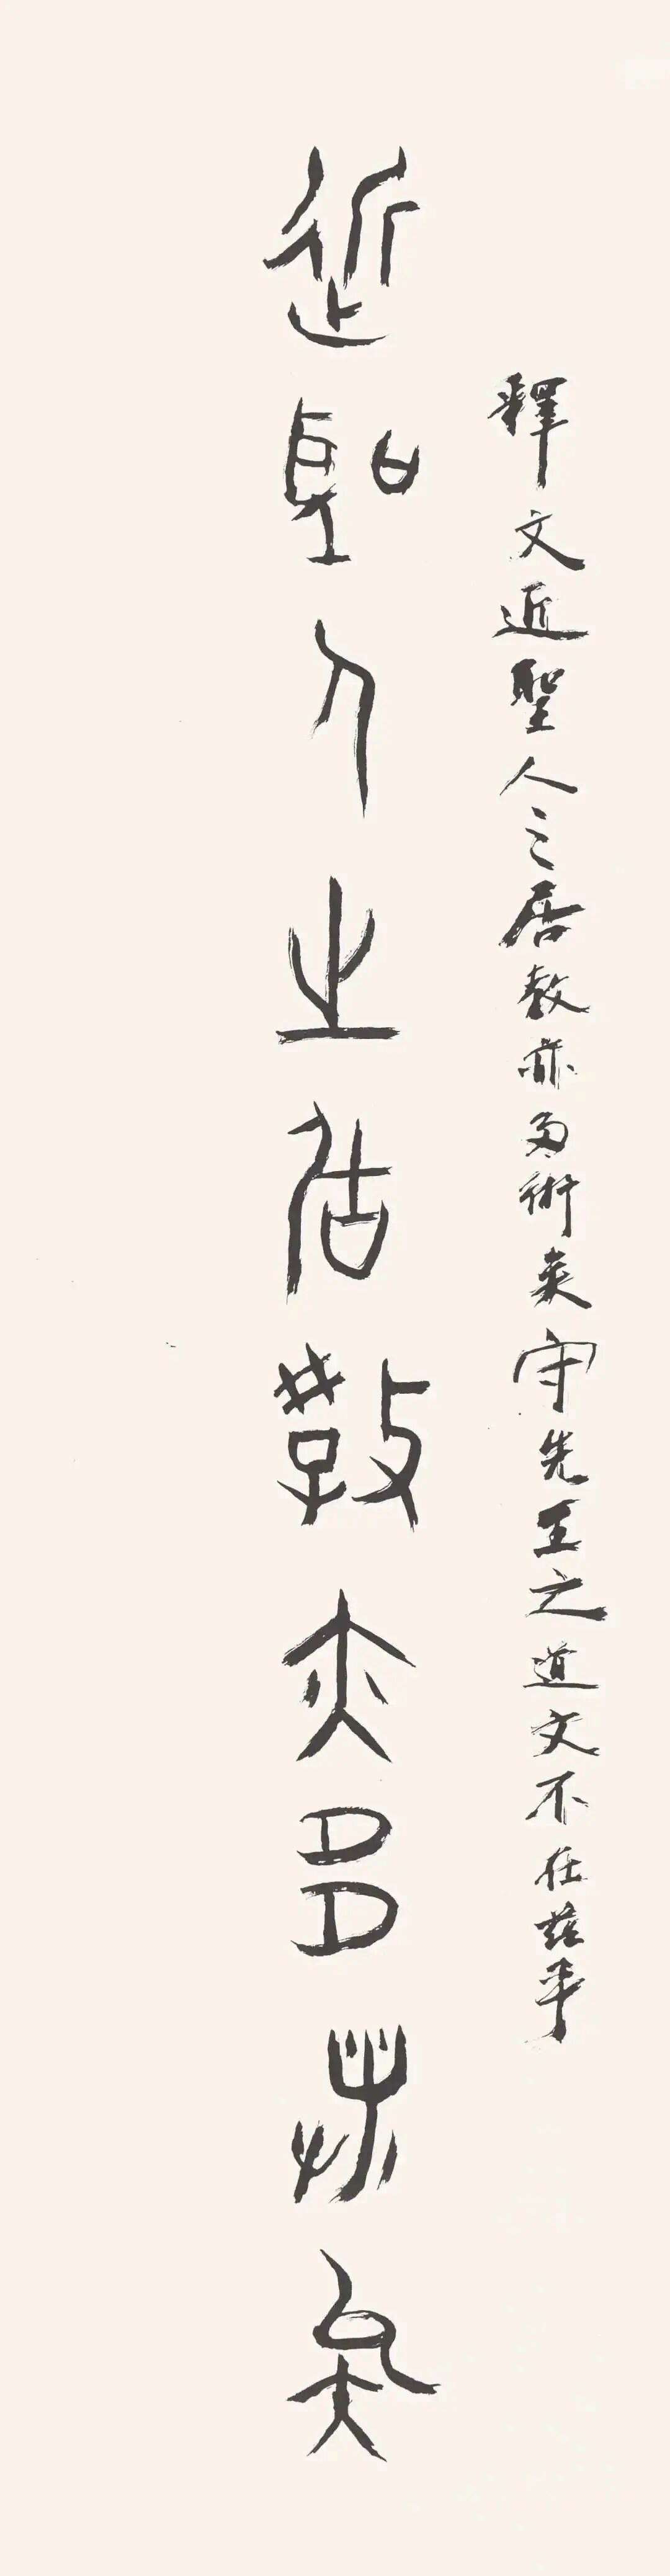 釋文近聖人之居教亦多術矣守先王之道文不在茲乎
近聖人之居教亦多術矣